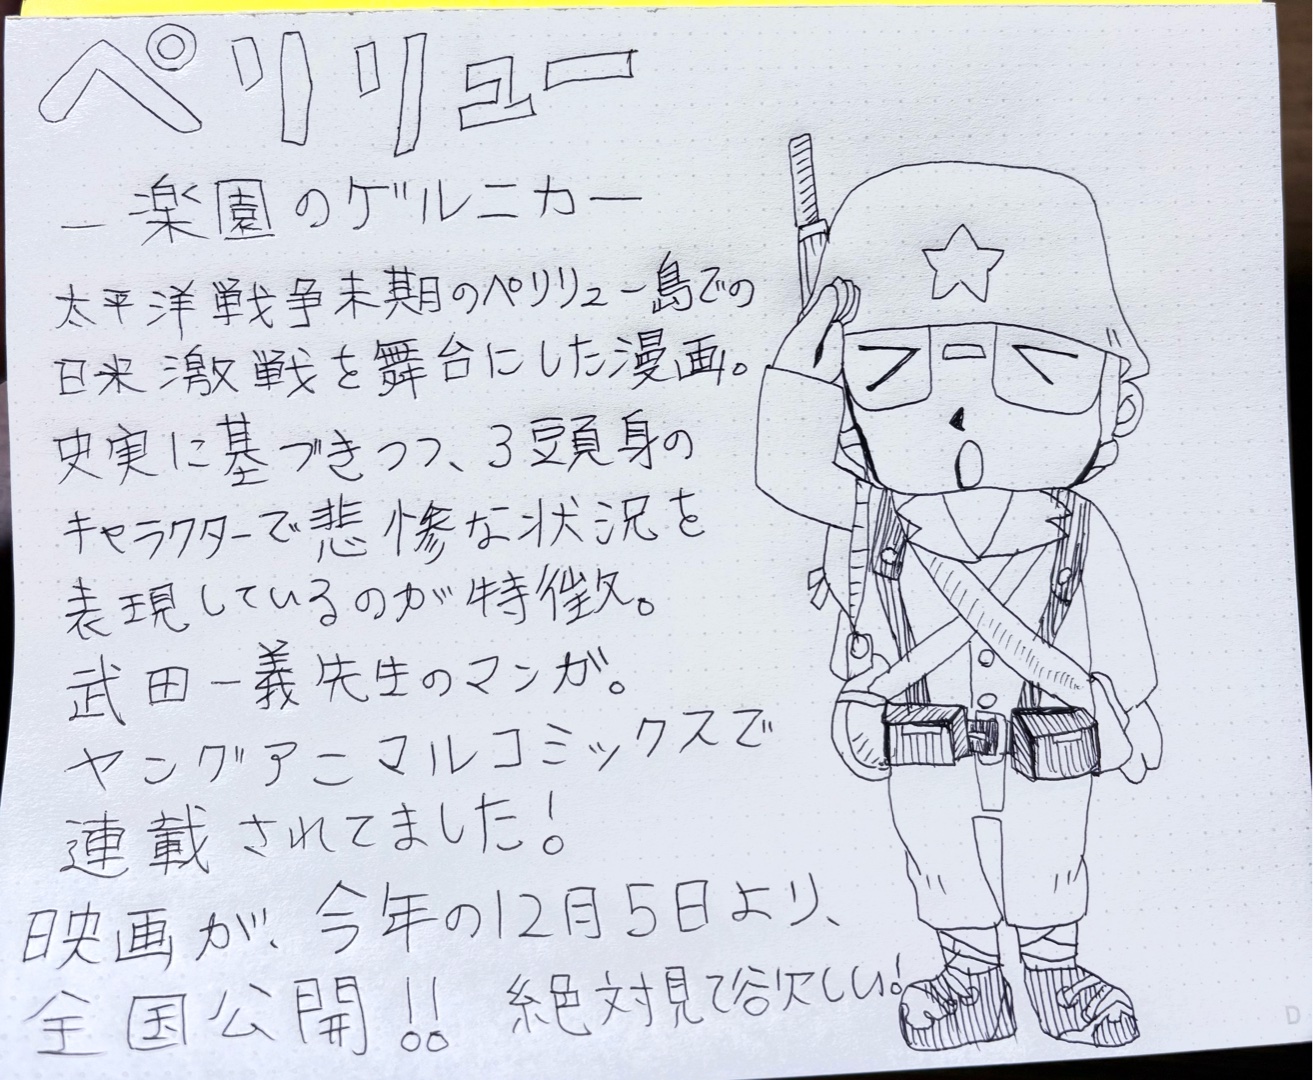 ペリリュー
―楽園のゲルニカ―
太平洋戦争末期のペリリュー島での
日米激戦を舞台にした漫画。
史実に基づきつつ、3頭身の
キャラクターで悲惨な状況を
表現しているのが特徴。
武田一義先生のマンガ。
ヤングアニマルコミックスで
連載されてました!
映画が、今年の12月5日より、
全国公開!! 絶対見て欲しい!
D